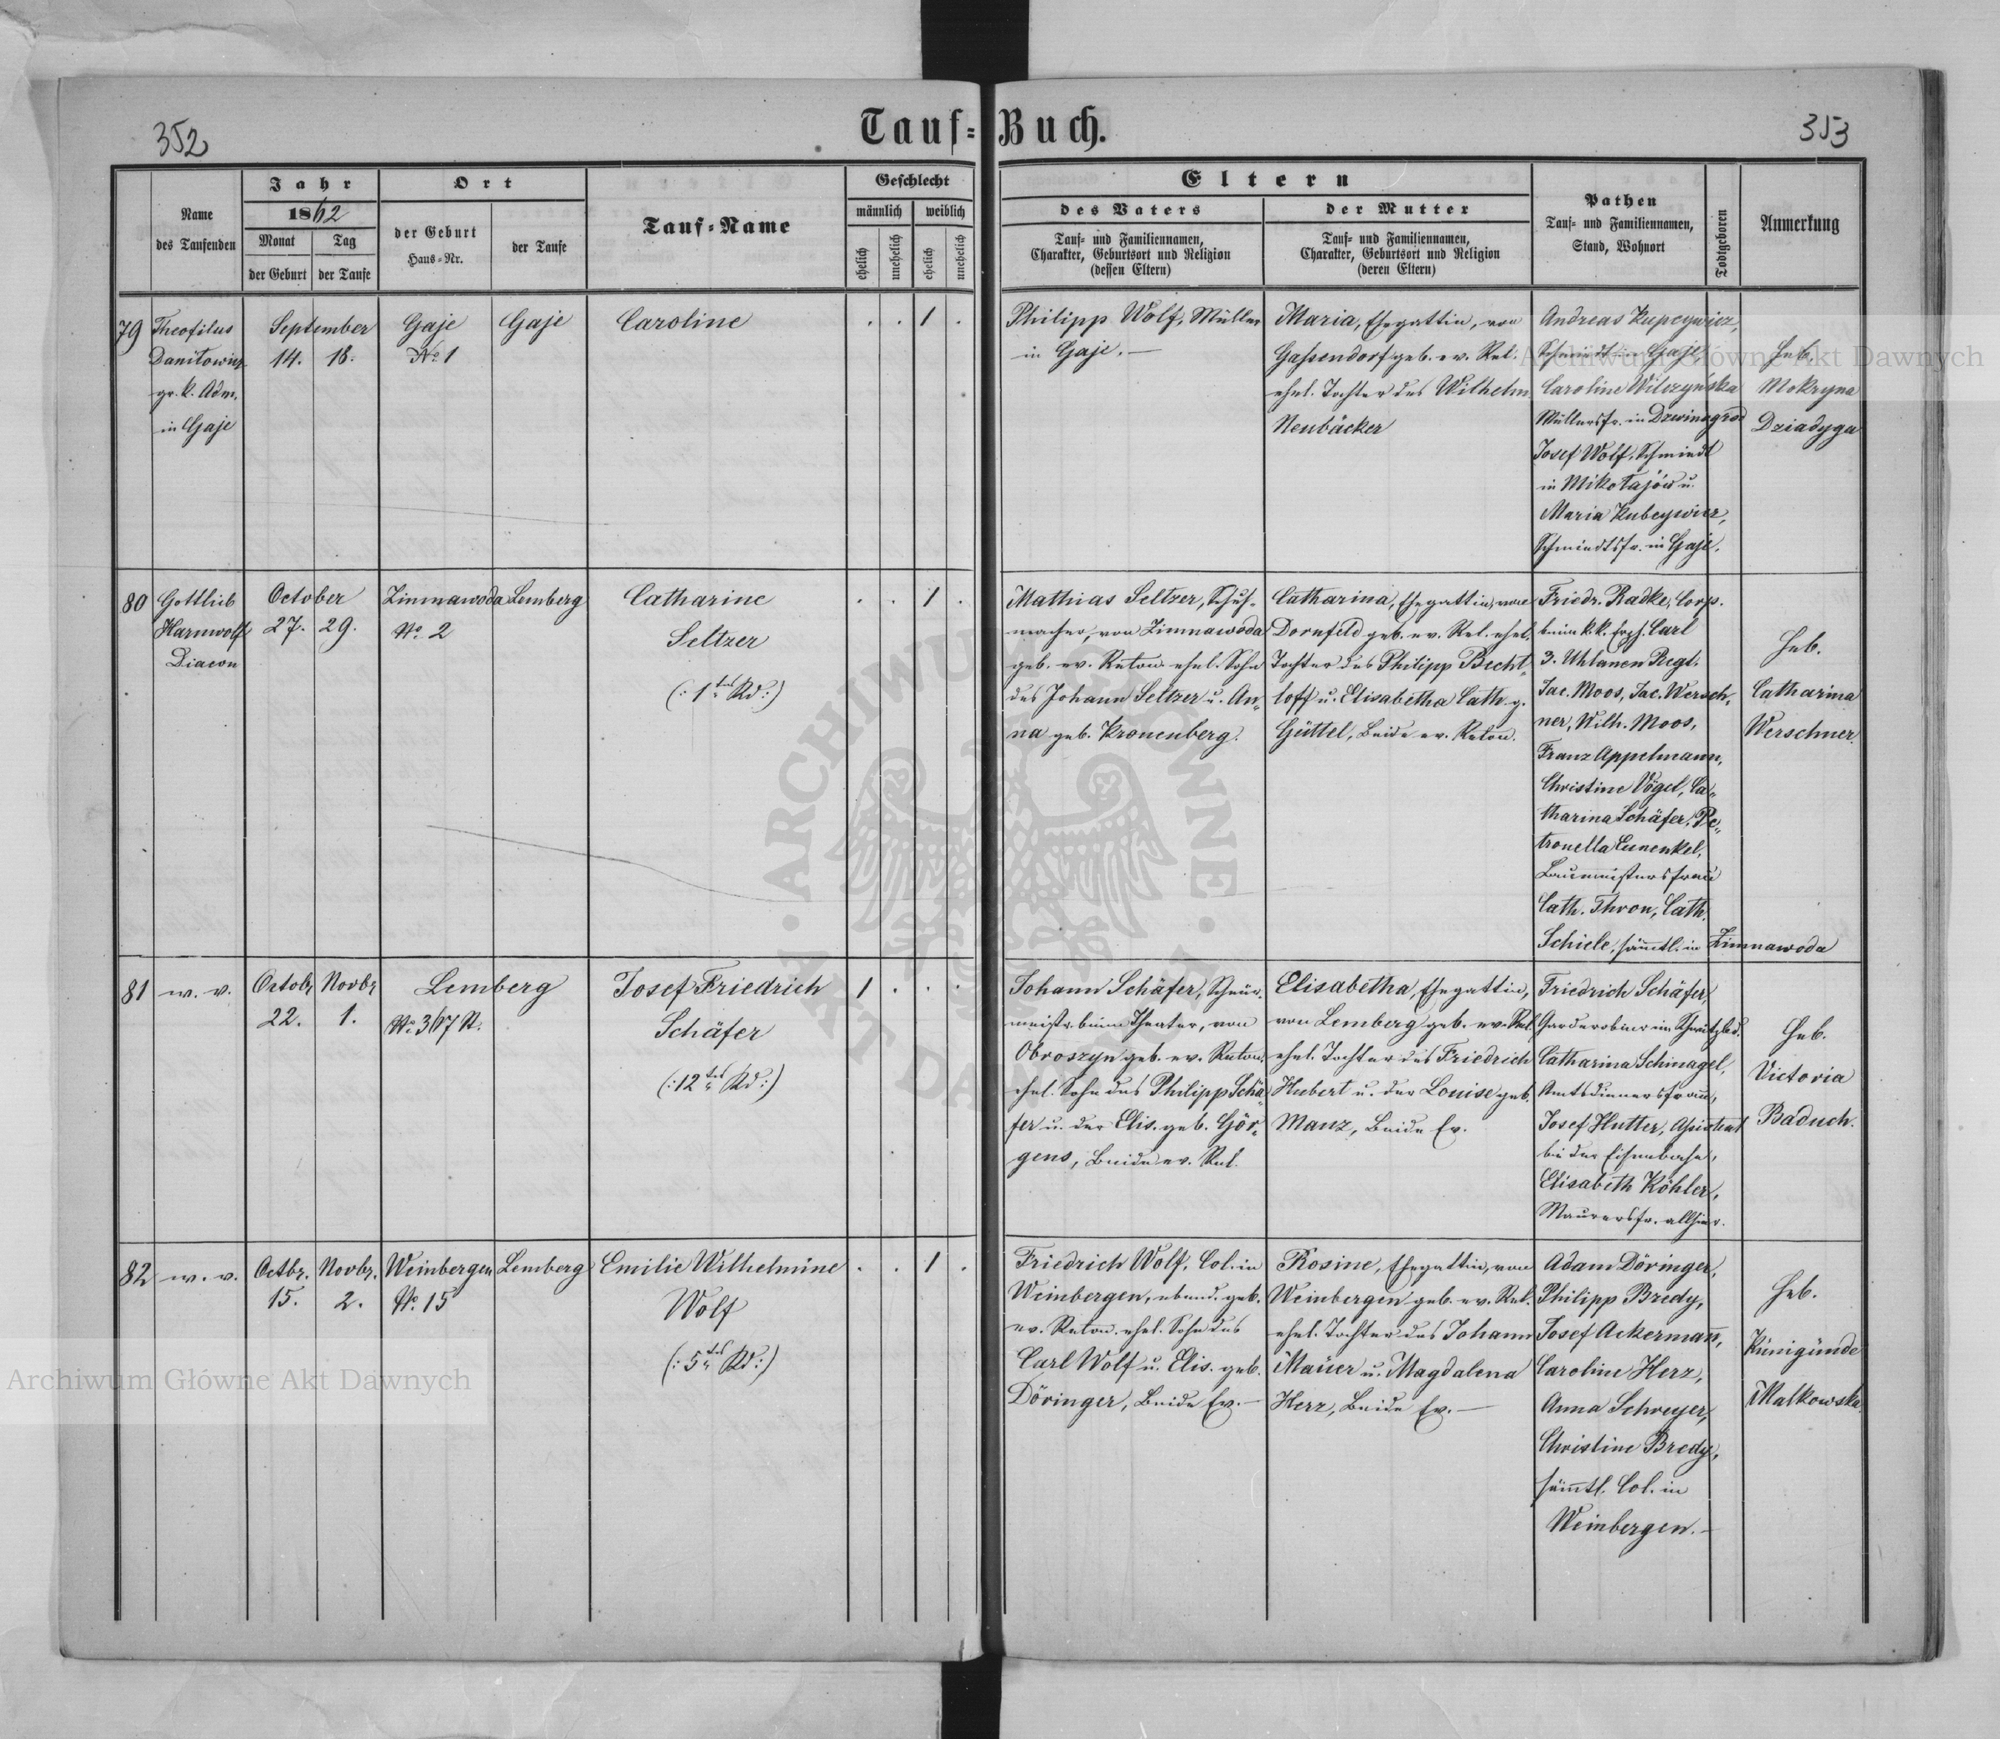 352
Tauf-Buch.
353
Name
des Taufenden
Jahr
1862
Monat
Tag
der Geburt
der Taufe
Ort
der Geburt
Haus-Nr.
der Taufe
Tauf-Name
Geschlecht
männlich
weiblich
ehelich
unehelich
ehelich
unehelich
Eltern
des Vaters
Tauf- und Familiennamen,
Charakter, Geburtsort und Religion
(dessen Eltern)
der Mutter
Tauf- und Familiennamen,
Charakter, Geburtsort und Religion
(deren Eltern)
Pathen
Tauf- und Familiennamen,
Stand, Wohnort
Todtgeboren
Anmerkung
79
Theofilus
Daniłowicz
gr. k. Adm.
in Gaje
September
14. 18.
Gaje
No. 1
Gaje
Caroline
. . 1 .
Philipp Wolf, Müller
in Gaje. —
Maria, Ehegattin, von
Gassendorf geb. ev. Rel.
ehel. Tochter des Wilhelm
Neubäcker
Andreas Kupcywicz,
Schmiedt in Gaje,
Caroline Wilczyńska
Müllersfr. in Dzwinogród
Josef Wolf, Schmiedt
in Mikołajów u.
Maria Kubcywicz,
Schmiedtsfr. in Gaje.
Heb.
Mokryna
Dziadyga
80
Gottlieb
Harnwolf
Diacon
October
27. 29.
Zimnawoda
No. 2
Lemberg
Catharine
Seltzer
(: 1tes Kd :)
. . 1 .
Mathias Seltzer, Schuh-
macher, von Zimnawoda
geb. ev. Reton. ehel. Sohn
des Johann Seltzer u. An-
na geb. Kronenberg.
Catharina, Ehegattin, von
Dornfeld geb. ev. Rel. ehel.
Tochter des Philipp Becht-
loff u. Elisabetha Cath. g.
Güttel, Beide ev. Reton.
Friedr. Radke, Corp.
beim k.k. Erzh. Carl
3. Uhlanen Regt.
Jac. Moos, Jac. Wersch-
ner, Wilh. Moos,
Franz Appelmann,
Christine Vögel, Ca-
tharina Schäfer, Pe-
tronella Eunenkel,
Baumeistersfrau
Cath. Thron, Cath.
Schiele, sämmtl. in Zimnawoda
Heb.
Catharina
Werschner.
81
w. v.
Octobr. Novbr.
22. 1.
Lemberg
Josef Friedrich
Schäfer
(: 12tes Kd :)
1 . . .
Johann Schäfer, Schnür-
meistr. beim Theater, von
Obroszyn geb. ev. Reton.
ehel. Sohn des Philipp Schä-
fer u. der Elis. geb. Gör-
gens, Beide ev. Rel.
Elisabetha, Ehegattin,
von Lemberg geb. ev. Rel.
ehel. Tochter des Friedrich
Hubert u. der Louise geb.
Manz, Beide Ev.
Friedrich Schäfer,
Catharina Schinagel,
Amtsdienersfrau,
Josef Hutter, Assistent
bei der Eisenbahn,
Elisabeth Köhler,
Maurersfr. allhier.
Heb.
Victoria
Baduch.
82
w. v.
Octbr. Novbr.
15. 2.
Weinbergen
No. 15
Lemberg
Emilie Wilhelmine
Wolf
(: 5tes Kd :)
. . 1 .
Friedrich Wolf, Col. in
Weinbergen, ebend. geb.
ev. Reton. ehel. Sohn des
Carl Wolf u. Elis. geb.
Döringer, Beide Ev. —
Rosine, Ehegattin, von
Weinbergen geb. ev. Rel.
ehel. Tochter des Johann
Maüer u. Magdalena
Herz, Beide Ev. —
Adam Döringer,
Philipp Bredy,
Josef Ackermañ,
Caroline Herz,
Anna Schreyer,
Christine Bredy,
säm̅tl. Col. in
Weinbergen. —
Heb.
Kunigunde
Malkowska.
Archiwum Główne Akt Dawnych
Archiwum Główne Akt Dawnych
ARCHIWUM GŁÓWNE AKT DAWNYCH